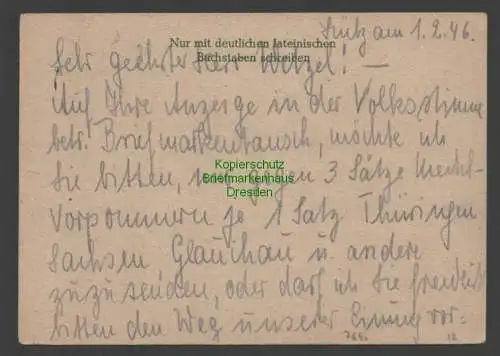 Lütz am 1.2.46.
Nur mit deutlichen lateinischen
Buchstaben schreiben
Sehr geehrter Herr Wetzel! —
Auf Ihre Anzeige in der Volksstimme
betr. Briefmarkentausch, möchte ich
Sie bitten, mir gegen 3 Sätze Meckl-
Vorpommern je 1 Satz Thüringen
Sachsen Glauchau u. andere
zuzusenden, oder darf ich Sie freundlichst
bitten den Weg unserer Einung vor:
Kopierschutz
Briefmarkenhaus
Dresden